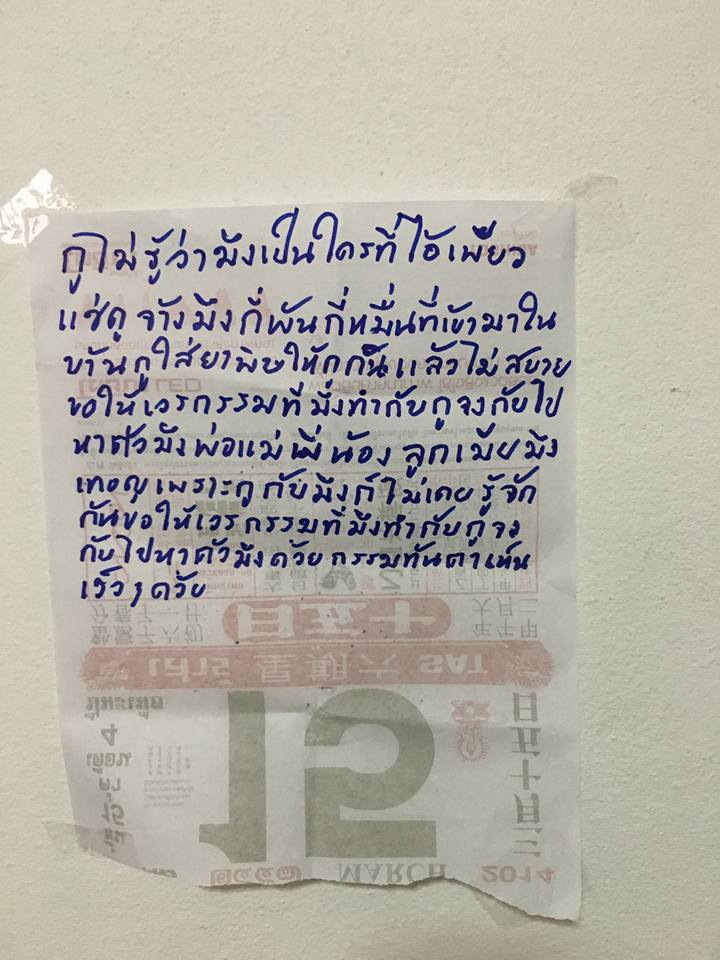 กูไม่รู้ว่ามึงเป็นใครที่ไอ้เพียว
แช่ดูจ้างมึงกี่พันกี่หมื่นที่เข้ามาใน
บ้านกูใส่ยาพิษให้กูกินแล้วไม่สบาย
ขอให้เวรกรรมที่มึงทำกับกูจงกับไป
หาตัวมึงพ่อแม่พี่น้อง ลูกเมียมึง
เทอญเพราะกูกับมึงก็ไม่เคยรู้จัก
กันขอให้เวรกรรมที่มึงทำกับกูจง
กับไปหาตัวมึงด้วยกรรมทันตาเห็น
เร็วๆด้วย
十五日
เสาร์ 星期六 SAT
15
三月十五日
๒๕๕๗ MARCH 2014